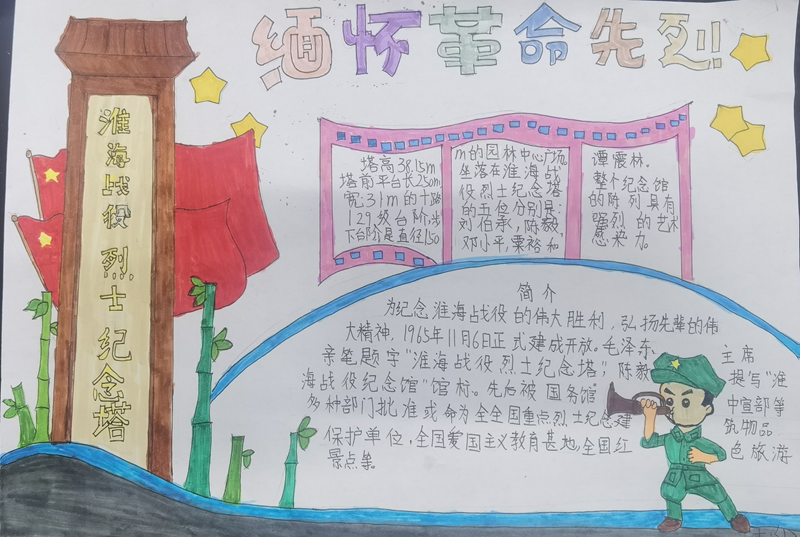 缅怀革命先烈!
淮海战役烈士纪念塔
塔高38.15m
塔前平台长250m
宽:31m的十路
129级台阶,步
下台阶是直径150
m的园林中心广场,
坐落在淮海战
役烈士纪念塔
的五位分别是:
刘伯承,陈毅,
邓小平,粟裕和
谭震林。
整个纪念馆
的陈列具有
强烈的艺术
感来力。
简介
为纪念淮海战役的伟大胜利,弘扬先辈的伟
大精神,1965年11月6日正式建成开放。毛泽东主席
亲笔题字"淮海战役烈士纪念塔"陈毅提写"淮
海战役纪念馆"馆标。先后被国务馆中宣部等
多种部门批准或命为全全国重点烈士纪念建筑物品
保护单位,全国爱国主义教育基地,全国红色旅游
景点等。